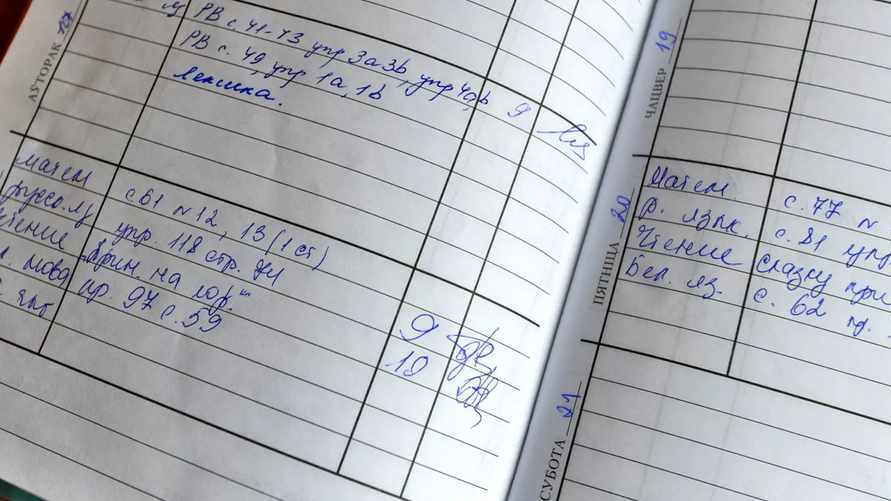 АЎТОРАК 17
РВ с. 41-43 упр 3а 3b, упр 4а,b
РВ с. 49, упр 1а, 1b 9
лексика.
матем с 61 N 12, 13 (1 ст)
упр. 118 стр. 71
чтение
мова пр. 97 с. 59 9
10
ЧАЦВЕР 19
ПЯТНІЦА 20
Матем. с. 77 N
Р. язык. с. 81 упр
Чтение сказку
Бел. яз. с. 62
СУБОТА 21